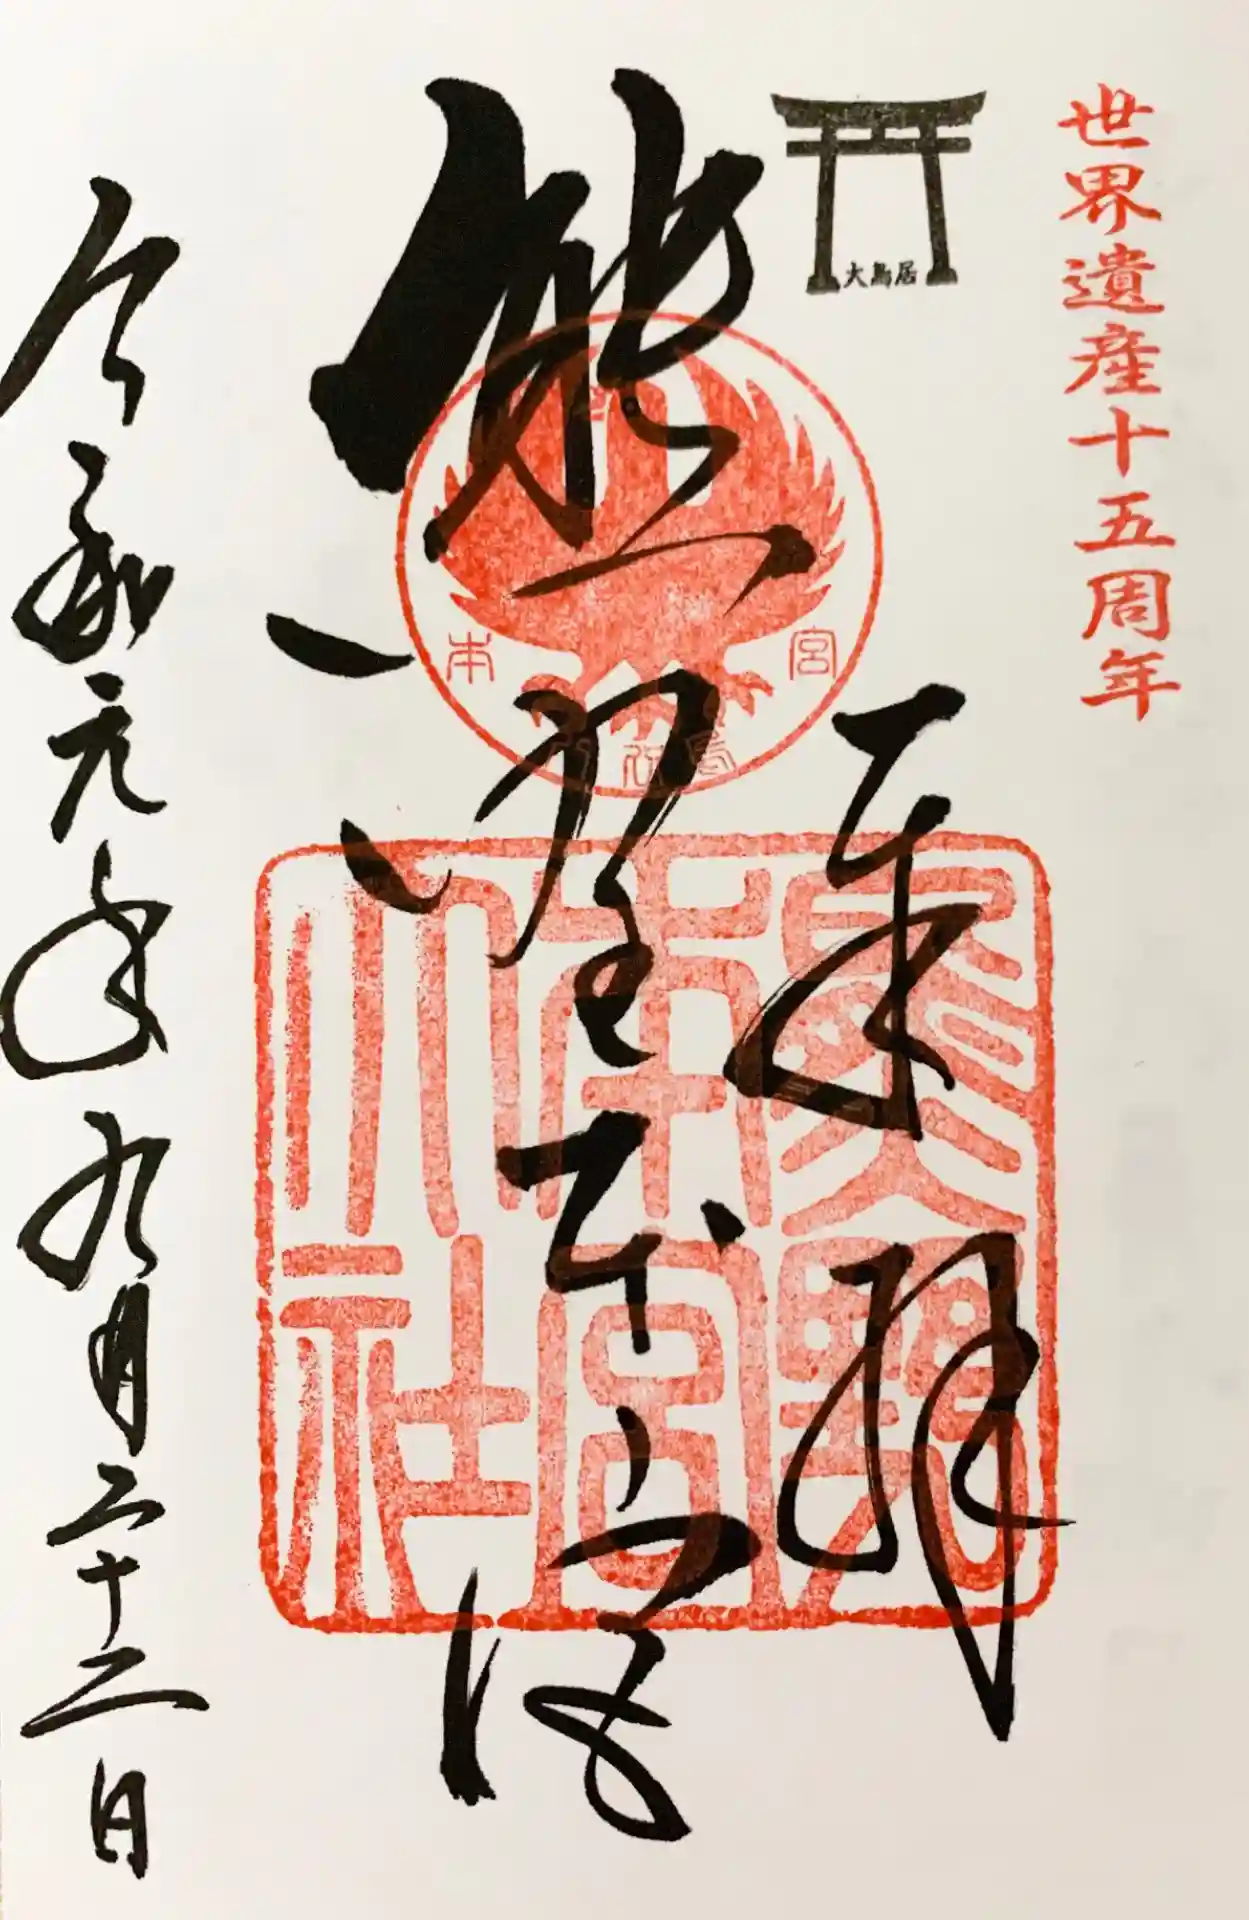 世界遺産十五周年
大鳥居
奉拝
熊野本宮
本宮
八咫烏
熊野
本宮
大社
令和元年九月二十二日